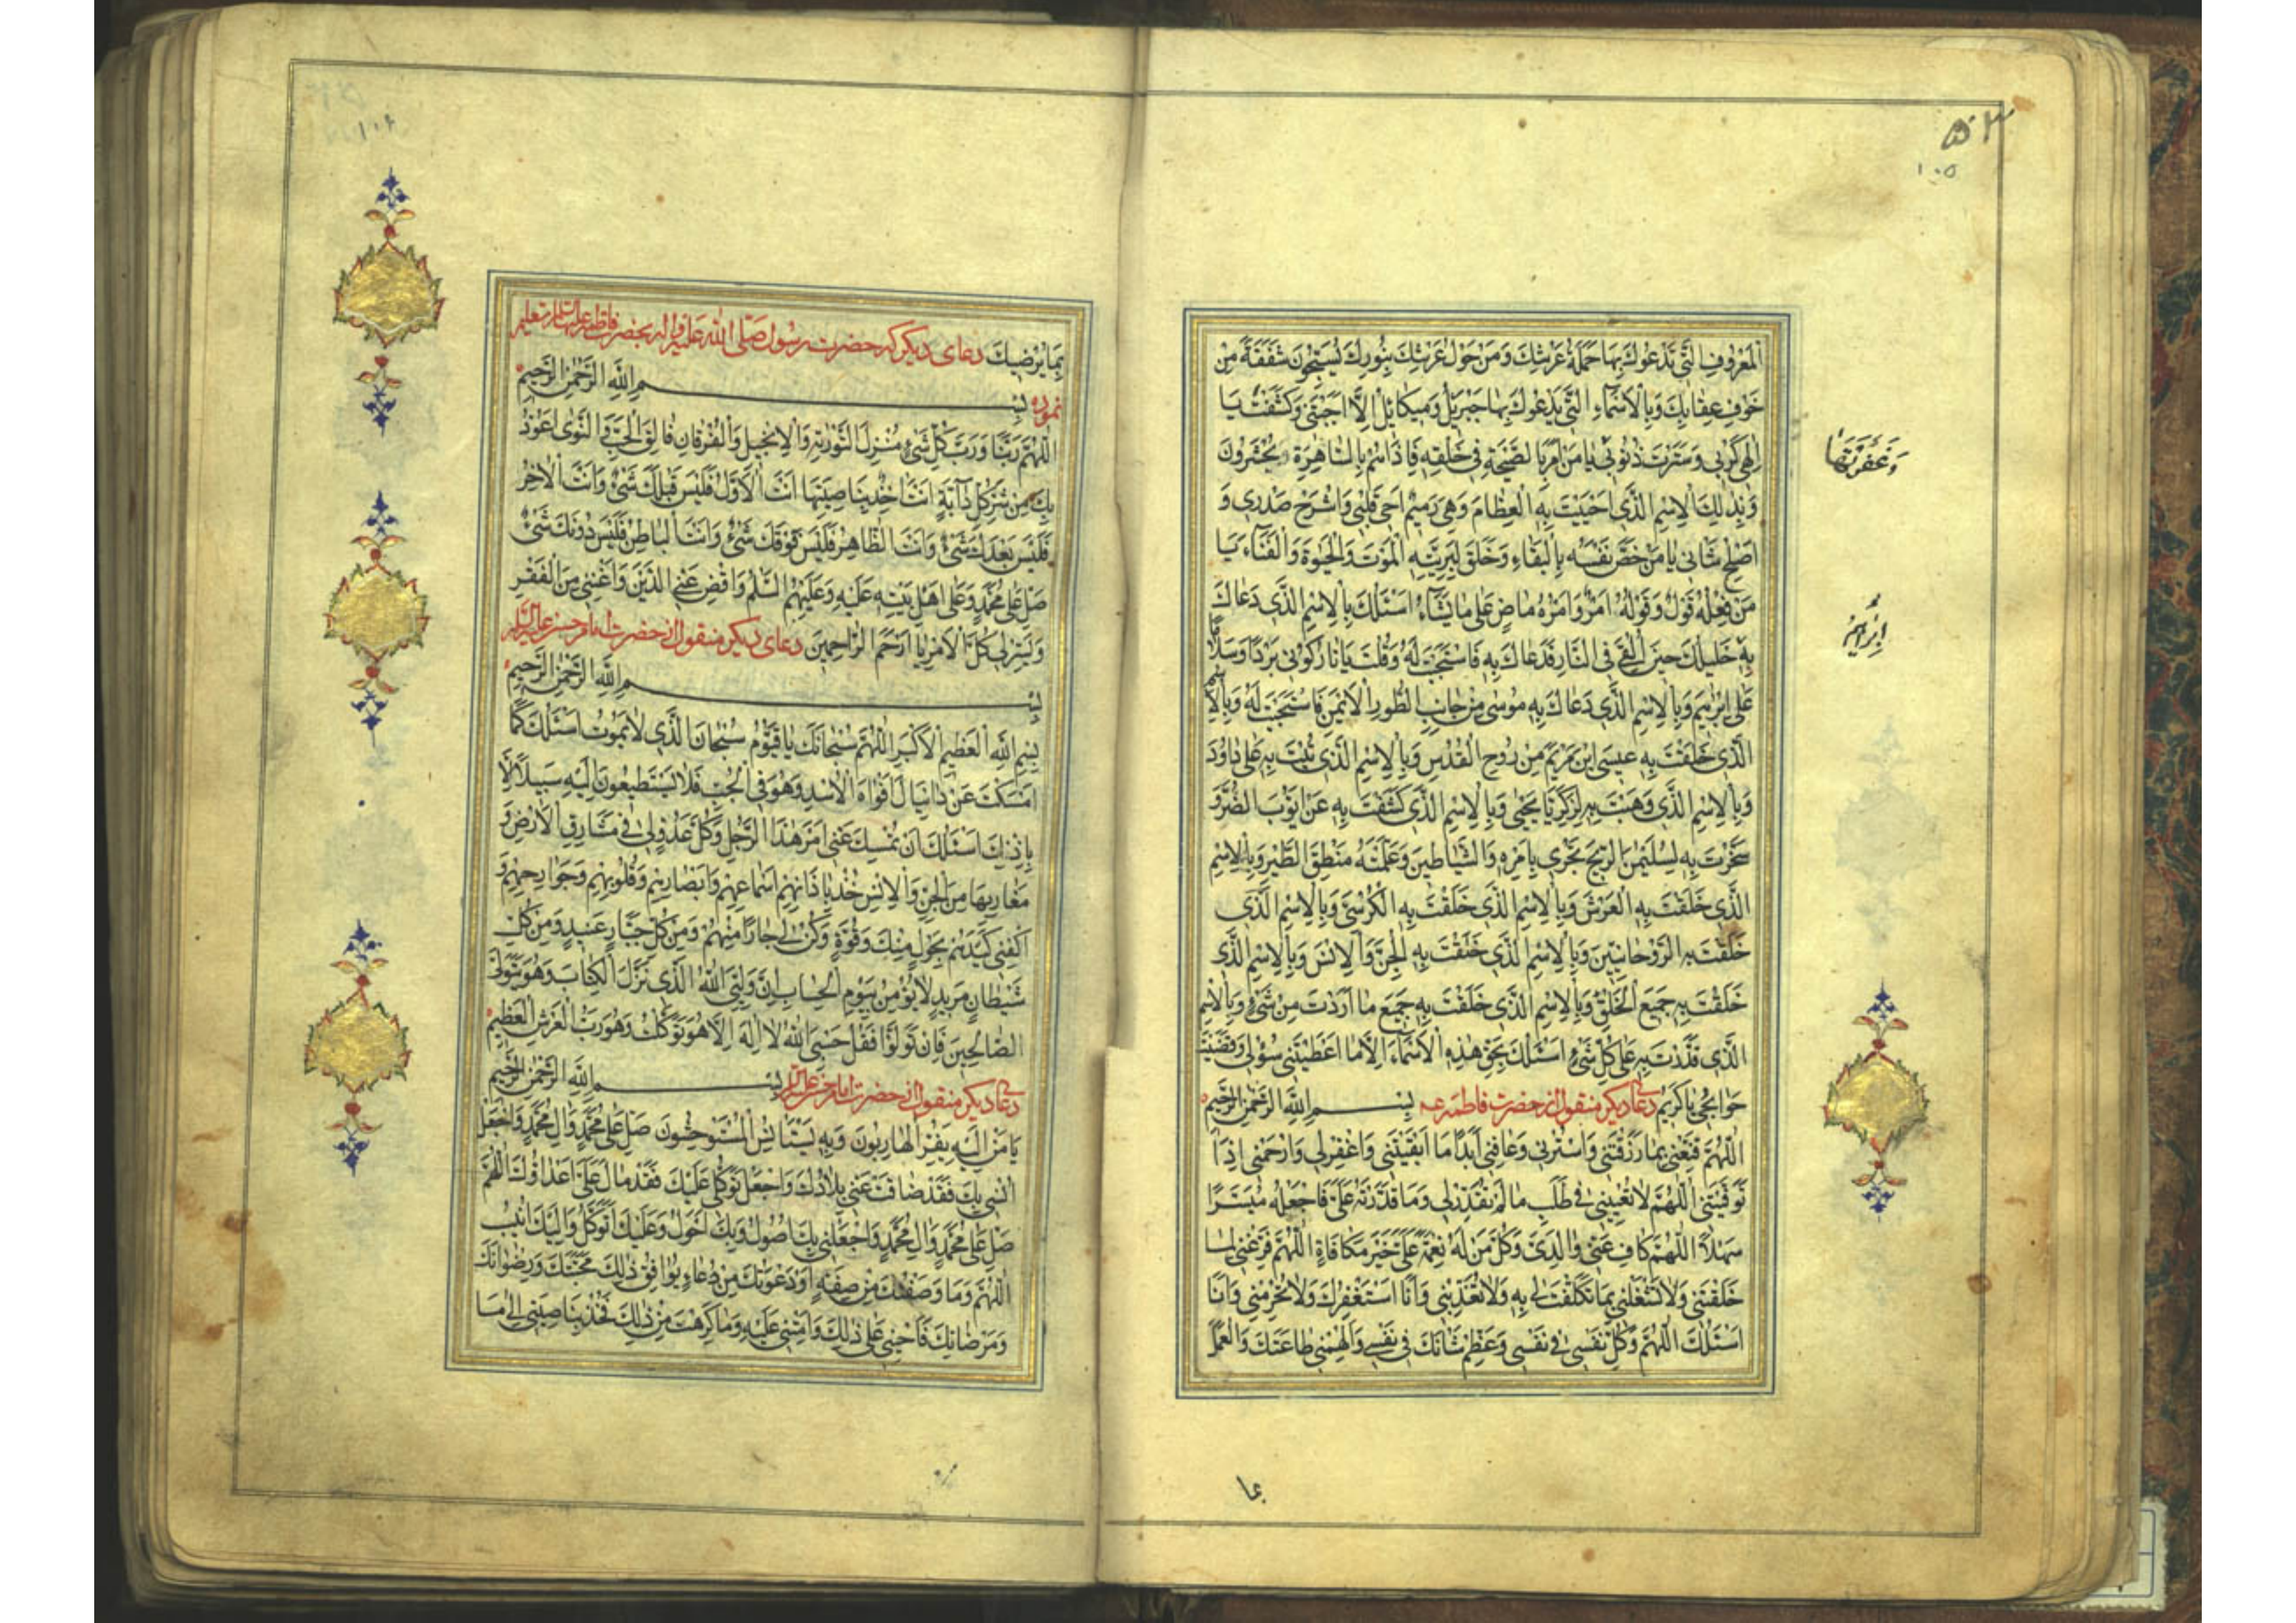 ۵۳
۱۰۵
اَلْمَعْرُوفِ الَّتِي تَدْعُوكَ بِهَا حَمَلَةُ عَرْشِكَ وَمَنْ حَوْلَ عَرْشِكَ بِنُورِكَ يُسَبِّحُونَ شَفَقَةً مِنْ
خَوْفِ عِقَابِكَ وَبِالْاَسْمَاءِ الَّتِي يَدْعُوكَ بِهَا جَبْرَئِلُ وَمِيكَائِلُ اِلَّا اَجَبْتَنِي وَكَشَفْتَ يَا
اِلهِي كُرْبَتِي وَسَتَرْتَ ذُنُوبِي يَا مَنْ اَمَرَ بِالصَّيْحَةِ فِي خَلْقِهِ فَاِذَا هُمْ بِالسَّاهِرَةِ يُحْشَرُونَ
وَبِذٰلِكَ الْاِسْمِ الَّذِي اَحْيَيْتَ بِهِ الْعِظَامَ وَهِيَ رَمِيمٌ اَحْيِ قَلْبِي وَاشْرَحْ صَدْرِي وَ
اَصْلِحْ شَانِي يَا مَنْ خَصَّ نَفْسَهُ بِالْبَقَاءِ وَخَلَقَ لِبَرِيَّتِهِ الْمَوْتَ وَالْحَيٰوةَ وَالْفَنَاءَ يَا
مَنْ فِعْلُهُ قَوْلٌ وَقَوْلُهُ اَمْرٌ وَاَمْرُهُ مَاضٍ عَلٰى مَا يَشَاءُ اَسْئَلُكَ بِالْاِسْمِ الَّذِي دَعَاكَ
بِهِ خَلِيلُكَ حِينَ اُلْقِيَ فِي النَّارِ فَدَعَاكَ بِهِ فَاسْتَجَبْتَ لَهُ وَقُلْتَ يَا نَارُ كُونِي بَرْدًا وَسَلَامًا
عَلٰى اِبْرٰهِيمَ وَبِالْاِسْمِ الَّذِي دَعَاكَ بِهِ مُوسٰى مِنْ جَانِبِ الطُّورِ الْاَيْمَنِ فَاسْتَجَبْتَ لَهُ وَبِالْاِسْمِ
الَّذِي خَلَقْتَ بِهِ عِيسَى ابْنَ مَرْيَمَ مِنْ رُوحِ الْقُدُسِ وَبِالْاِسْمِ الَّذِي تُبْتَ بِهِ عَلٰى دَاوُدَ
وَبِالْاِسْمِ الَّذِي وَهَبْتَ بِهِ لِزَكَرِيَّا يَحْيٰى وَبِالْاِسْمِ الَّذِي كَشَفْتَ بِهِ عَنْ اَيُّوبَ الضُّرَّ وَ
سَخَّرْتَ بِهِ لِسُلَيْمٰنَ الرِّيحَ تَجْرِي بِاَمْرِهِ وَالشَّيَاطِينَ وَعَلَّمْتَهُ مَنْطِقَ الطَّيْرِ وَبِالْاِسْمِ
الَّذِي خَلَقْتَ بِهِ الْعَرْشَ وَبِالْاِسْمِ الَّذِي خَلَقْتَ بِهِ الْكُرْسِيَّ وَبِالْاِسْمِ الَّذِي
خَلَقْتَ بِهِ الرُّوحَانِيِّينَ وَبِالْاِسْمِ الَّذِي خَلَقْتَ بِهِ الْجِنَّ وَالْاِنْسَ وَبِالْاِسْمِ الَّذِي
خَلَقْتَ بِهِ جَمِيعَ الْخَلْقِ وَبِالْاِسْمِ الَّذِي خَلَقْتَ بِهِ جَمِيعَ مَا اَرَدْتَ مِنْ شَيْءٍ وَبِالْاِسْمِ
الَّذِي قَدَرْتَ بِهِ عَلٰى كُلِّ شَيْءٍ اَسْئَلُكَ بِحَقِّ هٰذِهِ الْاَسْمَاءِ اِلَّا مَا اَعْطَيْتَنِي سُؤْلِي وَقَضَيْتَ
حَوَائِجِي يَا كَرِيمُ دعای دیگر منقول از حضرت فاطمه عـ بِسْمِ اللّٰهِ الرَّحْمٰنِ الرَّحِيمِ
اَللّٰهُمَّ قَنِّعْنِي بِمَا رَزَقْتَنِي وَاسْتُرْنِي وَعَافِنِي اَبَدًا مَا اَبْقَيْتَنِي وَاغْفِرْ لِي وَارْحَمْنِي اِذَا
تَوَفَّيْتَنِي اَللّٰهُمَّ لَا تُعْيِنِي فِي طَلَبِ مَا لَمْ تُقَدِّرْ لِي وَمَا قَدَّرْتَهُ عَلَيَّ فَاجْعَلْهُ مُيَسَّرًا
سَهْلًا اَللّٰهُمَّ كَافِ عَنِّي وَالِدَيَّ وَكُلَّ مَنْ لَهُ نِعْمَةٌ عَلَيَّ خَيْرَ مُكَافَاةٍ اَللّٰهُمَّ فَرِّغْنِي لِمَا
خَلَقْتَنِي وَلَا تَشْغَلْنِي بِمَا تَكَلَّفْتَ لِي بِهِ وَلَا تُعَذِّبْنِي وَاَنَا اَسْتَغْفِرُكَ وَلَا تَحْرِمْنِي وَاَنَا
اَسْئَلُكَ اَللّٰهُمَّ وَذَلِّلْ نَفْسِي فِي نَفْسِي وَعَظِّمْ شَانَكَ فِي نَفْسِي وَاَلْهِمْنِي طَاعَتَكَ وَالْعَمَلَ
اِبْرَاهِيمَ
بما
۱۰۶
بِمَا يُرْضِيكَ دعای دیگر که حضرت رسول صَلَّی اللّٰه عَلَیْهِ وَاٰلِه بحضرت فاطمه علیها السلام تعلیم
نموده بِسْمِ اللّٰهِ الرَّحْمٰنِ الرَّحِيمِ
اَللّٰهُمَّ رَبَّنَا وَرَبَّ كُلِّ شَيْءٍ مُنْزِلَ التَّوْرٰيةِ وَالْاِنْجِيلِ وَالْفُرْقَانِ فَالِقَ الْحَبِّ وَالنَّوٰى اَعُوذُ
بِكَ مِنْ شَرِّ كُلِّ دَابَّةٍ اَنْتَ اٰخِذٌ بِنَاصِيَتِهَا اَنْتَ الْاَوَّلُ فَلَيْسَ قَبْلَكَ شَيْءٌ وَاَنْتَ الْاٰخِرُ
فَلَيْسَ بَعْدَكَ شَيْءٌ وَاَنْتَ الظَّاهِرُ فَلَيْسَ فَوْقَكَ شَيْءٌ وَاَنْتَ الْبَاطِنُ فَلَيْسَ دُونَكَ شَيْءٌ
صَلِّ عَلٰى مُحَمَّدٍ وَعَلٰى اَهْلِ بَيْتِهِ عَلَيْهِ وَعَلَيْهِمُ السَّلٰمُ وَاقْضِ عَنِّي الدَّيْنَ وَاَغْنِنِي مِنَ الْفَقْرِ
وَيَسِّرْ لِي كُلَّ الْاَمْرِ يَا اَرْحَمَ الرَّاحِمِينَ دعای دیگر منقول از حضرت امام حسن علیه السلام
بِسْمِ اللّٰهِ الرَّحْمٰنِ الرَّحِيمِ
بِسْمِ اللّٰهِ الْعَظِيمِ الْاَكْبَرِ اَللّٰهُمَّ سُبْحَانَكَ يَا قَيُّومُ سُبْحَانَ الَّذِي لَا يَمُوتُ اَسْئَلُكَ كَمَا
اَمْسَكْتَ عَنْ دَانِيَالَ اَفْوَاهَ الْاُسْدِ وَهُوَ فِي الْجُبِّ فَلَا يَسْتَطِيعُونَ اِلَيْهِ سَبِيلًا اِلَّا
بِاِذْنِكَ اَسْئَلُكَ اَنْ تُمْسِكَ عَنِّي اَمْرَ هٰذَا الرَّجُلِ وَكُلَّ عَدُوٍّ لِي فِي مَشَارِقِ الْاَرْضِ وَ
مَغَارِبِهَا مِنَ الْجِنِّ وَالْاِنْسِ خُذْ بِاٰذَانِهِمْ وَاَسْمَاعِهِمْ وَاَبْصَارِهِمْ وَقُلُوبِهِمْ وَجَوَارِحِهِمْ وَ
اكْفِنِي كَيْدَهُمْ بِحَوْلٍ مِنْكَ وَقُوَّةٍ وَكُنْ لِي جَارًا مِنْهُمْ وَمِنْ كُلِّ جَبَّارٍ عَنِيدٍ وَمِنْ كُلِّ
شَيْطَانٍ مَرِيدٍ لَا يُؤْمِنُ بِيَوْمِ الْحِسَابِ اِنَّ وَلِيِّيَ اللّٰهُ الَّذِي نَزَّلَ الْكِتَابَ وَهُوَ يَتَوَلَّى
الصَّالِحِينَ فَاِنْ تَوَلَّوْا فَقُلْ حَسْبِيَ اللّٰهُ لَا اِلٰهَ اِلَّا هُوَ عَلَيْهِ تَوَكَّلْتُ وَهُوَ رَبُّ الْعَرْشِ الْعَظِيمِ
دعای دیگر منقول از حضرت امام علیه السلام بِسْمِ اللّٰهِ الرَّحْمٰنِ الرَّحِيمِ
يَا مَنْ اِلَيْهِ يَفِرُّ الْهَارِبُونَ وَبِهِ يَسْتَانِسُ الْمُسْتَوْحِشُونَ صَلِّ عَلٰى مُحَمَّدٍ وَاٰلِ مُحَمَّدٍ وَاجْعَلْ
اُنْسِي بِكَ فَقَدْ ضَاقَتْ عَنِّي بِلَادُكَ وَاجْعَلْ تَوَكُّلِي عَلَيْكَ فَقَدْ مَالَ عَلَيَّ اَعْدَاؤُكَ اَللّٰهُمَّ
صَلِّ عَلٰى مُحَمَّدٍ وَاٰلِ مُحَمَّدٍ وَاجْعَلْنِي بِكَ اَصُولُ وَبِكَ اَحُولُ وَعَلَيْكَ اَتَوَكَّلُ وَاِلَيْكَ اُنِيبُ
اَللّٰهُمَّ وَمَا وَصَفْتُكَ مِنْ صِفَةٍ اَوْ دَعَوْتُكَ مِنْ دُعَاءٍ يُوَافِقُ ذٰلِكَ مَحَبَّتَكَ وَرِضْوَانَكَ
وَمَرْضَاتَكَ فَاَحْيِنِي عَلٰى ذٰلِكَ وَاَمِتْنِي عَلَيْهِ وَمَا كَرِهْتَ مِنْ ذٰلِكَ فَخُذْ بِنَاصِيَتِي اِلٰى مَا